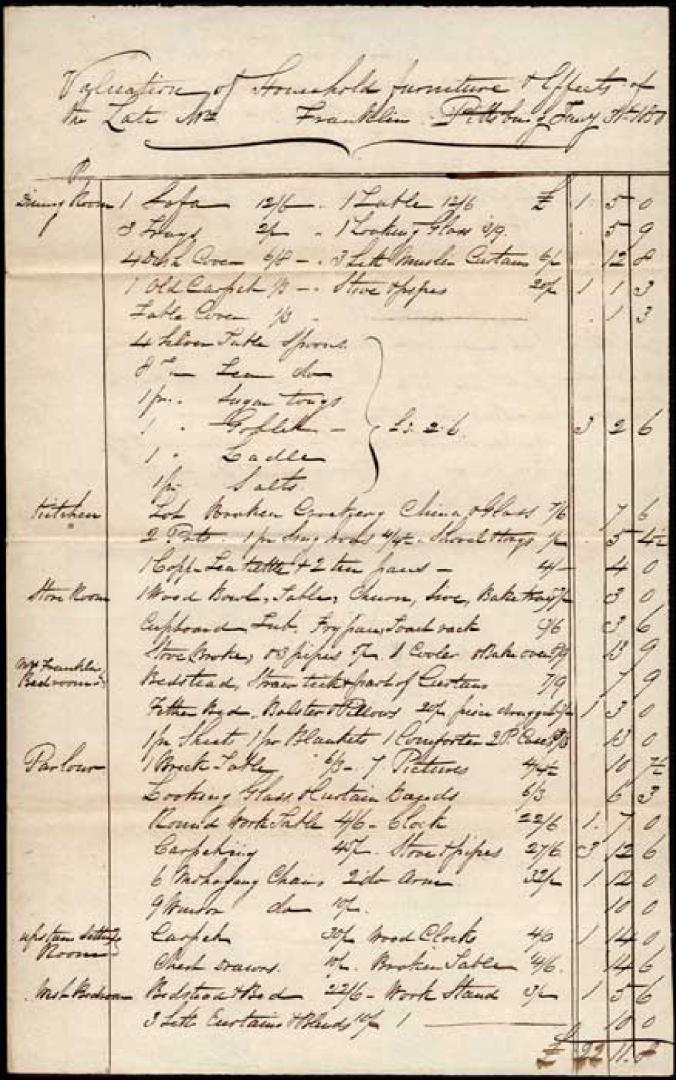 Valuation of Household furniture & Effects of
the Late Mrs Franklin Pittsburg Jany 31st 1850
Dining Room 1 Sofa 12/6 . 1 Table 12/6 £ 1 5 0
3 Trays 2/ " 1 Looking Glass 3/9 5 9
4 Dish Cover 6/8 - . 3 Sett Muslin Curtains 6/ 12 8
1 Old Carpet 1/3 - . Stove & pipes 20/ 1 1 3
Table Cover 1/3 1 3
4 Silver Table Spoons
8 Do Tea do
1 pr . Sugar tongs
1 " Goblet - £3. 2. 6. 3 2 6
1 " Ladle
1 pr Salts
Kitchen Lot Broken Crockery China & Glass 7/6 7 6
2 Pots . 1 pr 4/4½ . Shovel & tongs 1/ 5 4½
1 Copp Tea kettle & 2 tin pans - 4/- 4 0
Store Room 1 Wood Bowl, Table, Churn, Sive, Bake tray 3/ 3 0
Cupboard, Tub, Fry pan, Toast rack 3/6 3 6
Stove Broke, & 3 pipes 5/. 1 Cooler & Bake oven 8/9 13 9
Mrs Franklin
Bedroom Bedstead, Straw tick & part of Curtains 7/9 7 9
Fether Bed, Bolster & Pillows 20/. 1 3 0
1 pr Sheets 1 pr Blankets 1 Comforter 2 P. Cases 13 0
Parlour 1 Breek Table 6/3 - 7 Pictures 4/4½ 10 7½
Looking Glass & Curtain Bands 6/3 6 3
Round Work Table 4/6 - Clock 22/6 1 7 0
Carpeting 45/. Stove & pipes 27/6 3 12 6
6 Mohogany Chairs 2 do Arm 32/ 1 12 0
9 Winsor do 10/. 10 0
upstairs Sitting
Room Carpet 30/ Wood Clock 4/0 1 14 0
Chest Drawrs. 10/. Broken Table 4/6. 14 6
West Bedroom Bedstead & Bed 22/6 - Work Stand 3/ 1 5 6
3 Sett Curtains & Blinds 10/ 10 0
£ 22 11. 8